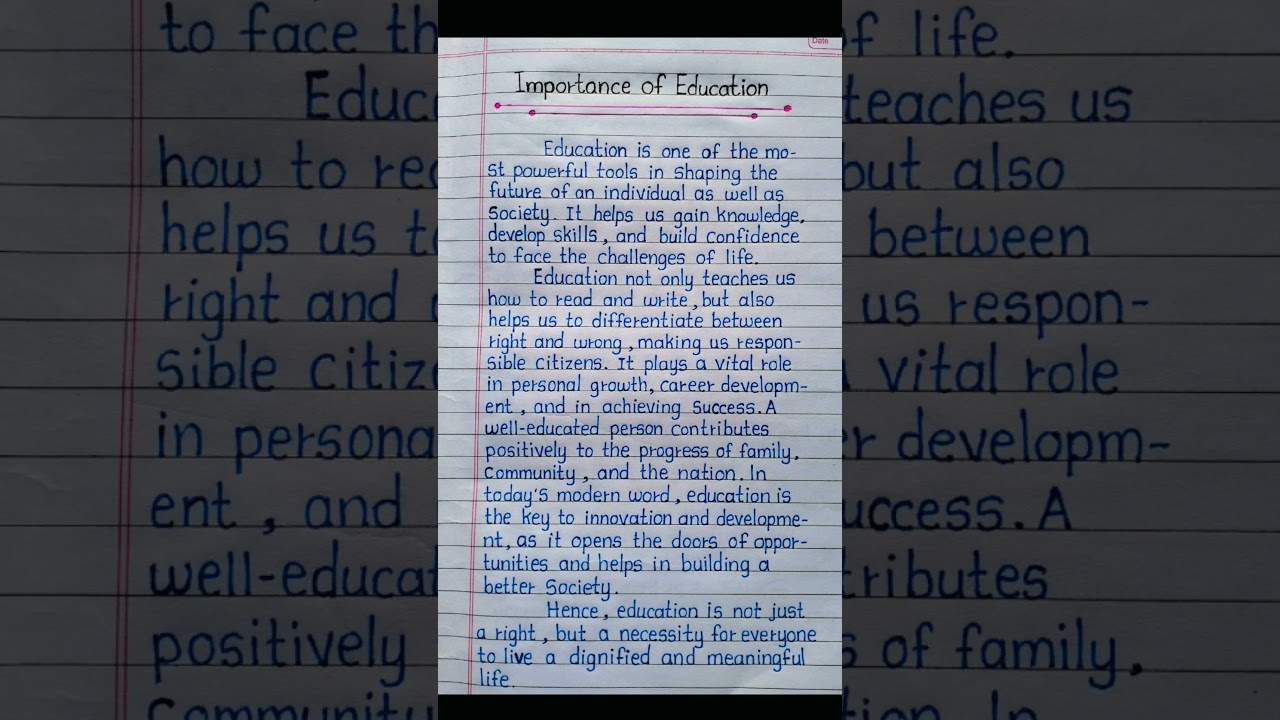 Date
Importance of Education
Education is one of the mo-
st powerful tools in shaping the
future of an individual as well as
Society. It helps us gain knowledge,
develop skills, and build confidence
to face the challenges of life.
Education not only teaches us
how to read and write, but also
helps us to differentiate between
right and wrong, making us respon-
sible citizens. It plays a vital role
in personal growth, career developm-
ent, and in achieving Success. A
well-educated person contributes
positively to the progress of family,
Community, and the nation. In
today's modern word, education is
the key to innovation and developme-
nt, as it opens the doors of oppor-
tunities and helps in building a
better Society.
Hence, education is not just
a right, but a necessity for everyone
to live a dignified and meaningful
life.